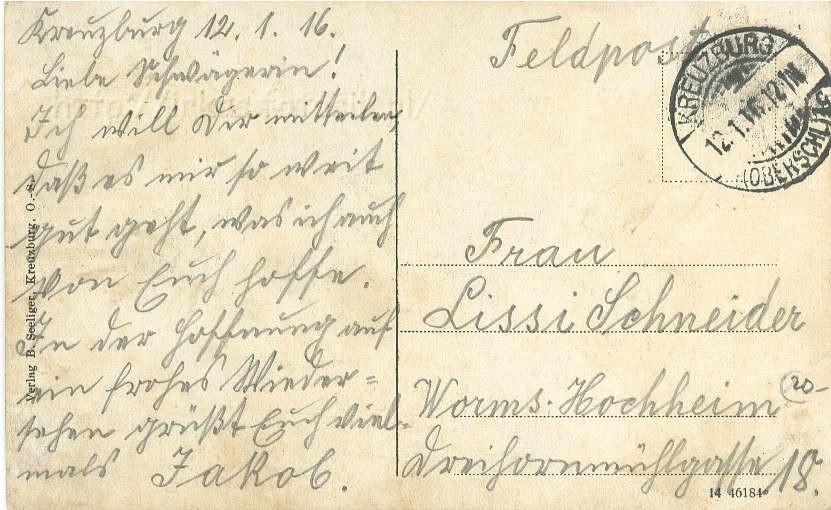 Kreuzburg 12. 1. 16.
Liebe Schwägerin!
Ich will Dir mitteilen,
daß es mir so weit
gut geht, was ich auch
von Euch hoffe.
In der Hoffnung auf
ein frohes Wieder=
sehen grüßt Euch viel-
mals Jakob.
Verlag B. Seeliger, Kreuzburg, O.-S.
Feldpost
KREUZBURG
12.1.16. 12-1N
(OBERSCHL)
Frau
Lissi Schneider
Worms-Hochheim
20-
Dreihornmühlgasse 18.
14 46184